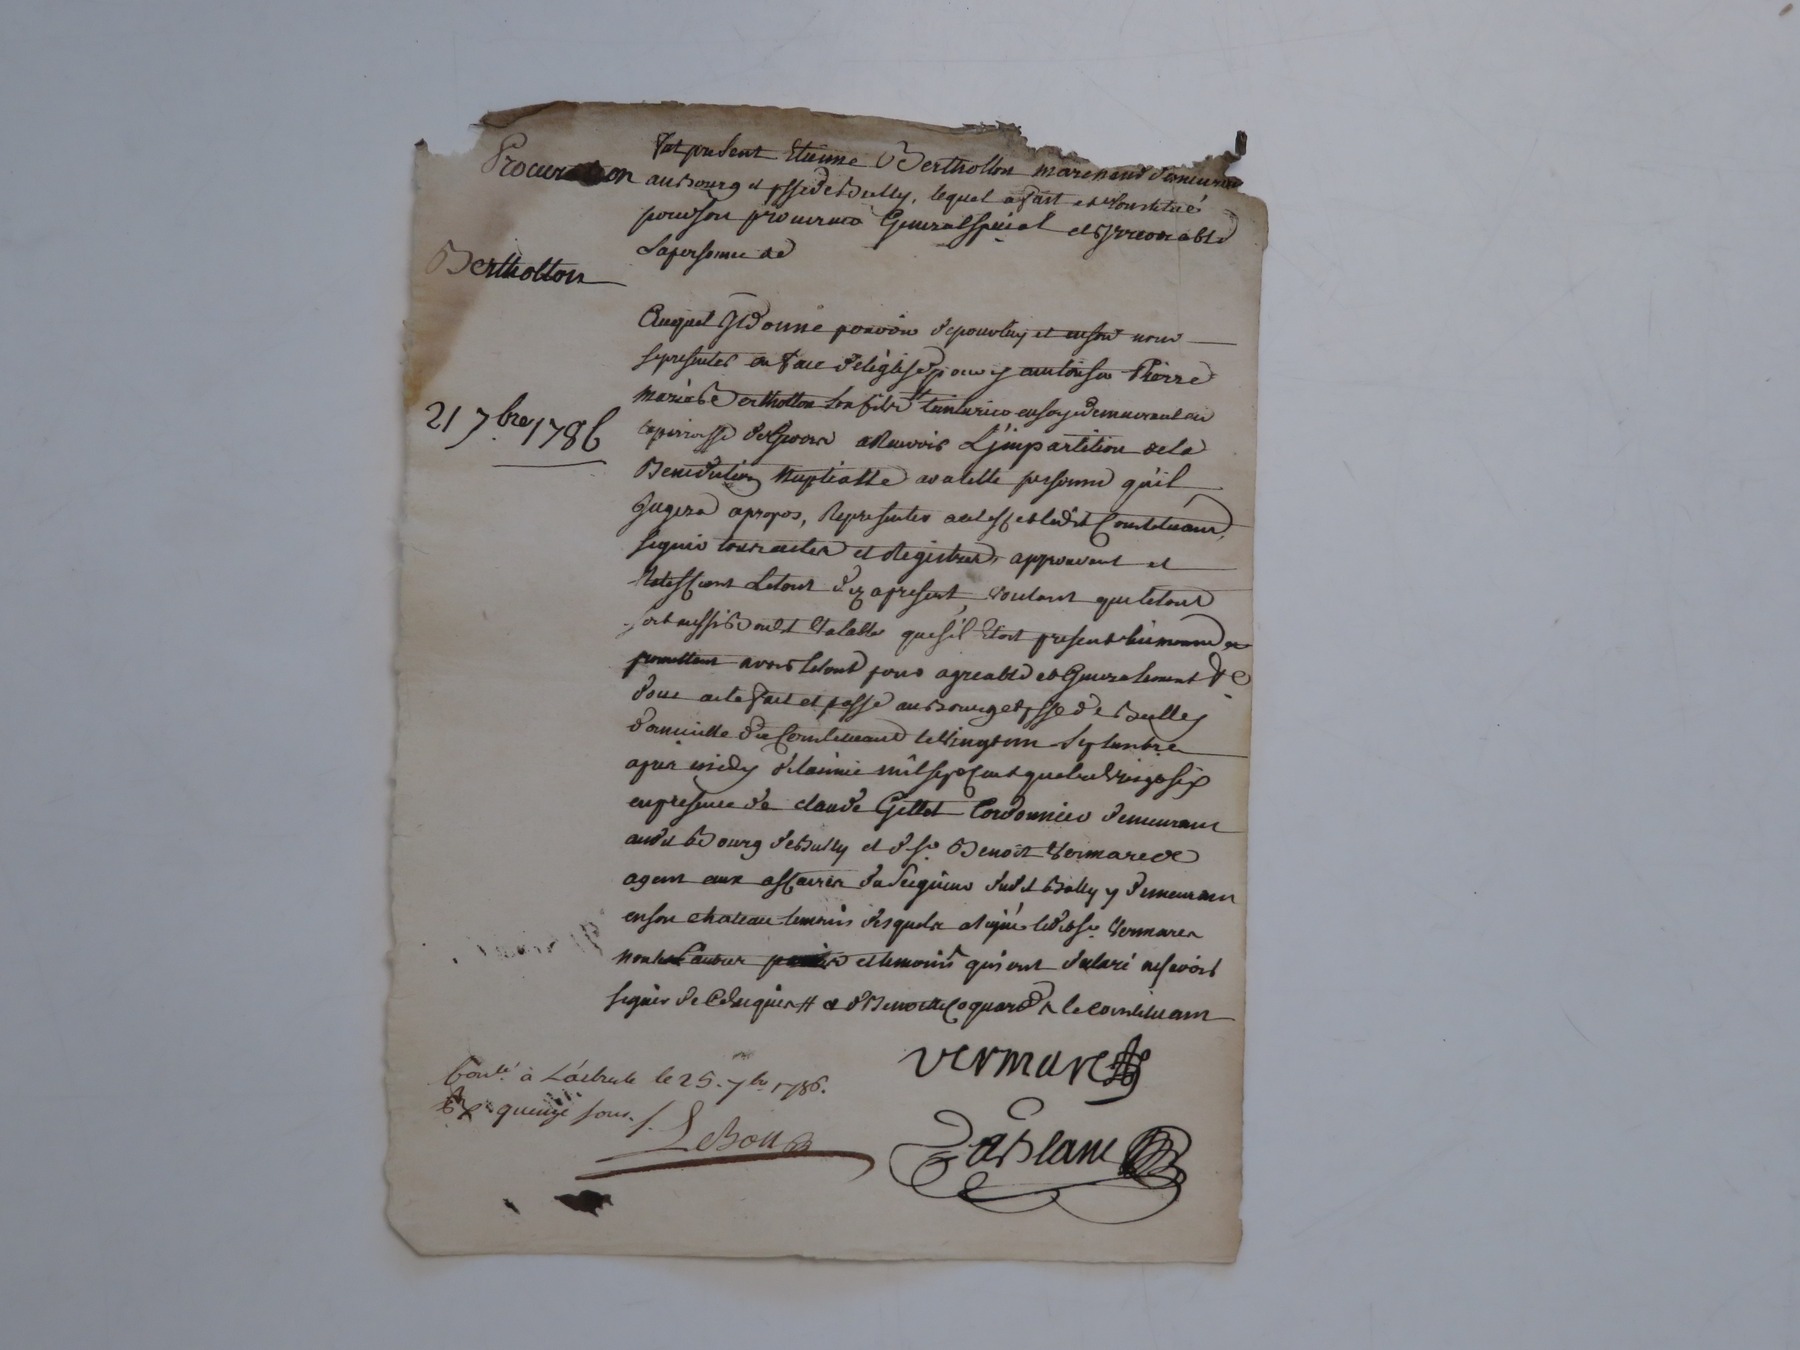 Procuration
Bertholton
21 7bre 1786
fut present Etienne Bertholton marchand demeurant
au Bourg et psse de Bully, lequel a fait et Constitué
pour son procureur General special et irrevocable
la personne de
Auquel Il donne pouvoir de pour luy et en son nom
se presenter en face d'eglise pour y autoriser Pierre
marie Bertholton son fils teinturier en soye demeurant en
la parroisse de a Recevoir L'impartition de la
Benediction Nuptialle avec telle personne qu'il
Jugera apropos, Representer a cet effet ledit Constituant,
signer tous actes et Registres, approuvant et
Ratiffiant le tout dez apresent, voulant que le tout
soit aussi Bon et Valable que s'il Etoit present luimeme
promettant avoir le tout pour agreable et Generalement &c
dont acte fait et passé au Bourg et psse de Bully
domicille du Constituant le Vingt un Septembre
apres midy de l'année mil sept Cent quatre Vingt Six
en presence de claude Gillet Cordonnier demeurant
audit Bourg de Bully et de sr Benoît Vermare
agent aux affaires du Seigneur dudit Bully y demeurant
en son chateau temoins desquels a signé ledit sr Vermare
non l'autre temoin qui ont declaré ne scavoir
signer de ce Requis # le constituant
vermare
Deblanc
Conté à L'arbresle le 25. 7bre 1786.
quinze sous.
LeBon